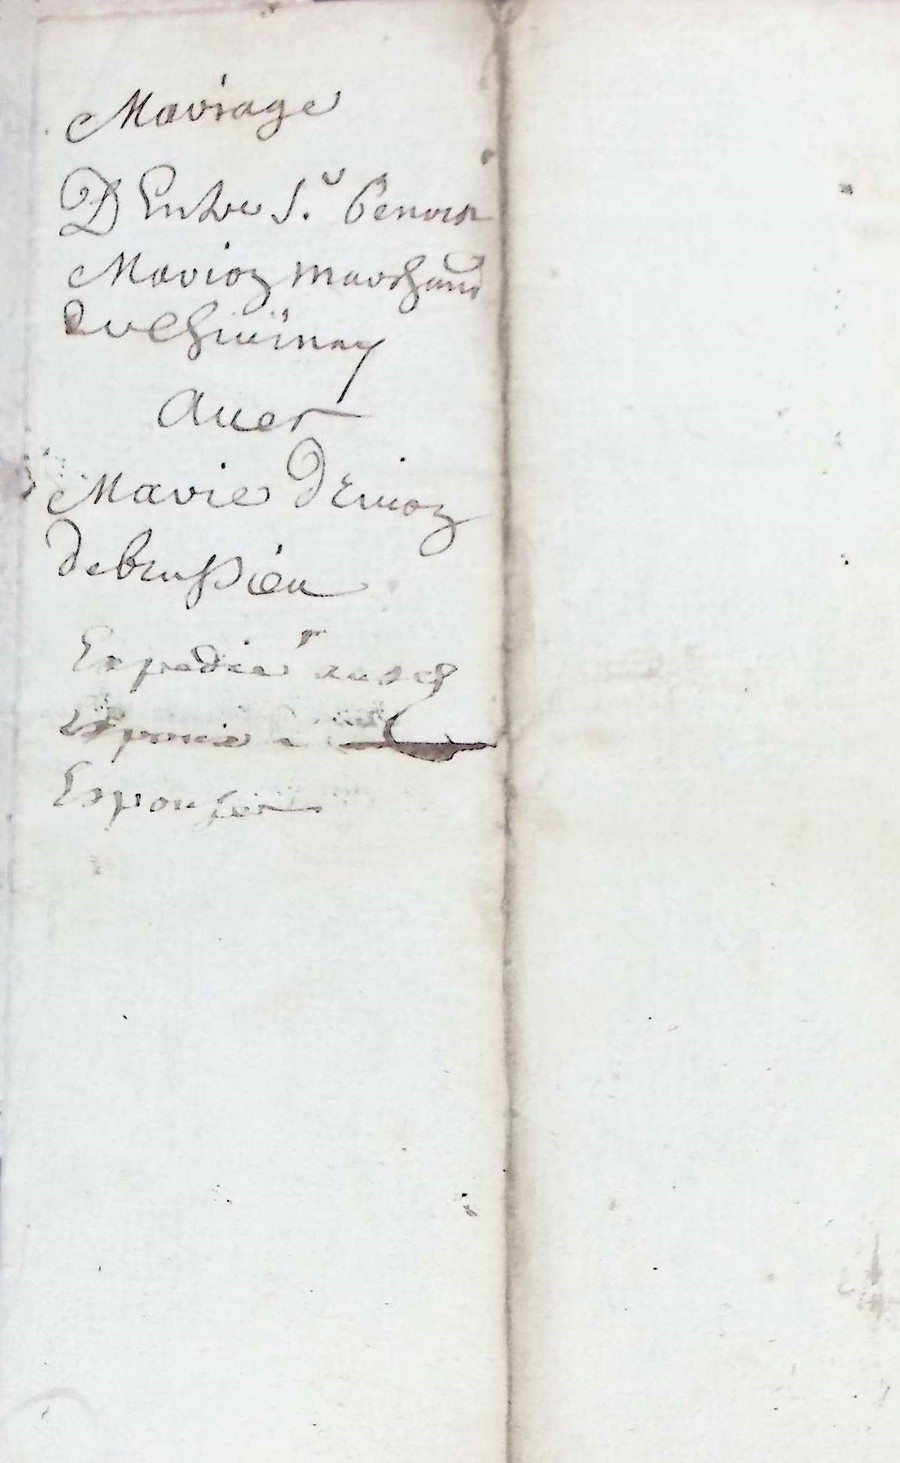 Mariage
D'Entre S.r Benoist
Marioz marchand
du Chuinay
Avec
Marie Drivoz
de brussieu
Expedié aus
Espouser